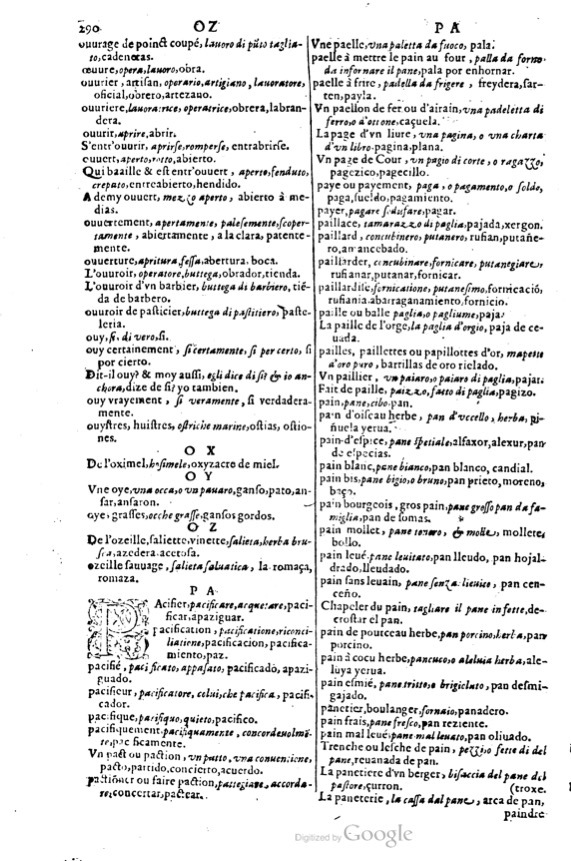 290 OZ
ouvrage de poinct coupé, lauoro di pũto taglia-
to, cadenetas.
œuure, opera, lauoro, obra.
ouurier, artisan, operario, artigiano, lauoratore,
oficial, obrero, artezano.
ouuriere, lauoratrice, operatrice, obrera, labran-
dera.
ouurir, aprire, abrir.
S'entr'ouurir, aprirse, romperse, entrabrirse.
ouuert, aperto, rotto, abierto.
Qui baaille & est entr'ouuert, aperto, fenduto,
crepato, entreabierto, hendido.
A demy ouuert, mezzo aperto, abierto à me-
dias.
ouuertement, apertamente, palesemente, scoper-
tamente, abiertamente, a la clara, patente-
mente.
ouuerture, apritura, fessa, abertura, boca.
L'ouuroir, operatore, buttega, obrador, tienda.
L'ouuroir d'vn barbier, buttega di barbiero, tié-
da de barbero.
ouuroir de pasticier, buttega di pastitiero, paste-
leria.
ouy, si, di vero, si.
ouy certainement, si certamente, si per certo, si
por cierto.
Dit-il ouy? & moy aussi, egli dice di si? & io an-
chora, dize de si? yo tambien.
ouy vrayement, si veramente, si verdadera-
mente.
ouystres, huistres, ostriche marine, ostias, ostio-
nes.
O X
De l'oximel, ossimele, oxyzacro de miel.
O Y
Vne oye, vna occa, o un pauaro, ganso, pato, an-
sar, ansaron.
oye, grasses, ocche grasse, gansos gordos.
O Z
De l'ozeille, saliette, vinette, salieta, herba bru-
sca, azedera, acetosa.
ozeille sauuage, salieta saluatica, la romaça,
romaza.
P A
PAcifier, pacificare, acquetare, paci-
ficar, apaziguar.
pacification, pacificatione, riconci-
liatione, pacificacion, pacifica-
miento, paz.
pacifié, pacificato, appasato, pacificado, apazi-
guado.
pacifieur, pacificatore, celui, che pacifica, pacifi-
cador.
pacifique, pacifiquo, quieto, pacifico.
pacifiquement, pacifiquamente, concordeuolmẽ-
te, pacificamente.
Vn pact ou paction, vn patto, vna conueniene,
pacto, partido, concierto, acuerdo.
pactiõner ou faire paction, pattegiare, accorda-
re, concertar, pactear.
P A
Vne paelle, vna paletta da fuoco, pala.
paelle à mettre le pain au four, palla da forno
da infornare il pane, pala por enhornar.
paelle à frire, padella da frigere, freydera, sar-
ten, payla.
Vn paellon de fer ou d'airain, vna padeletta di
ferro, o d'ottone, caçuela.
La page d'vn liure, vna pagina, o vna charta
d'vn libro pagina, plana.
Vn page de Cour, vn pagio di corte, o ragazzo,
pagezico, pagecillo.
paye ou payement, paga, o pagamento, o soldo,
paga, sueldo, pagamiento.
payer, pagare, sodusfare, pagar.
paillace, tamarazzo di paglia, pajada, xergon.
paillard, concubinero, putanero, rufian, putañe-
ro, amancebado.
paillarder, concubinare, fornicare, putanegiare,
rufianar, putanar, fornicar.
paillardise, fornicatione, putanesimo, fornicació,
rufiania, abarraganamiento, fornicio.
paille ou balle paglia, o pagliume, paja.
La paille de l'orge, la paglia d'orgio, paja de ce-
uada.
pailles, paillettes ou papillottes d'or, mapette
d'oro puro, bartillas de oro rielado.
Vn paillier, vn paiaro, o paiaro di paglia, pajar.
Fait de paille, paizzo, fatto di paglia, pagizo.
pain, pane, cibo, pan.
pain d'oiseau herbe, pan d'vccello, herba, pi-
ñuela yerua.
pain d'espice, pane spetiale, alfaxor, alexur, pan
de especias.
pain blanc, pane bianco, pan blanco, candial.
pain bis, pane bigio, o bruno, pan prieto, moreno,
baço.
pain bourgeois, gros pain, pane grosso pan da fa-
miglia, pan de somas.
pain mollet, pane tenero, & molle, mollete,
bollo.
pain leué, pane leuitato, pan lleudo, pan hojal-
drado, lleudado.
pain sans leuain, pane senza lieuito, pan cen-
ceño.
Chapeler du pain, tagliare il pane in fette, de-
crostar el pan.
pain de pourceau herbe, pan porcino, herba, pan
porcino.
pain à cocu herbe, pancuco, o aleluia herba, ale-
luya yerua.
pain esmié, pane tritto, o brigiolato, pan desmi-
gajado.
panetier, boulanger, fornaio, panadero.
pain frais, pane fresco, pan reziente.
pain mal leué, pane mal leuato, pan oliuado.
Trenche ou lesche de pain, pezzi, o fette di del
pane, reuanada de pan.
La panetiere d'vn berger, bisaccia del pane del
pastore, çurron. (troxe.
La paneterie, la cassa dal pane, arca de pan,
paindre
Digitized by Google